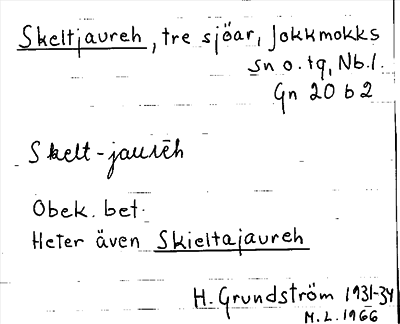 Skeltjaureh, tre sjöar, Jokkmokks
sn o. tg, Nb.l.
Gn 20 b 2
Skelt-jaurēh
Obek. bet.
Heter även Skieltajaureh
H. Grundström 1931-34
M.L. 1966